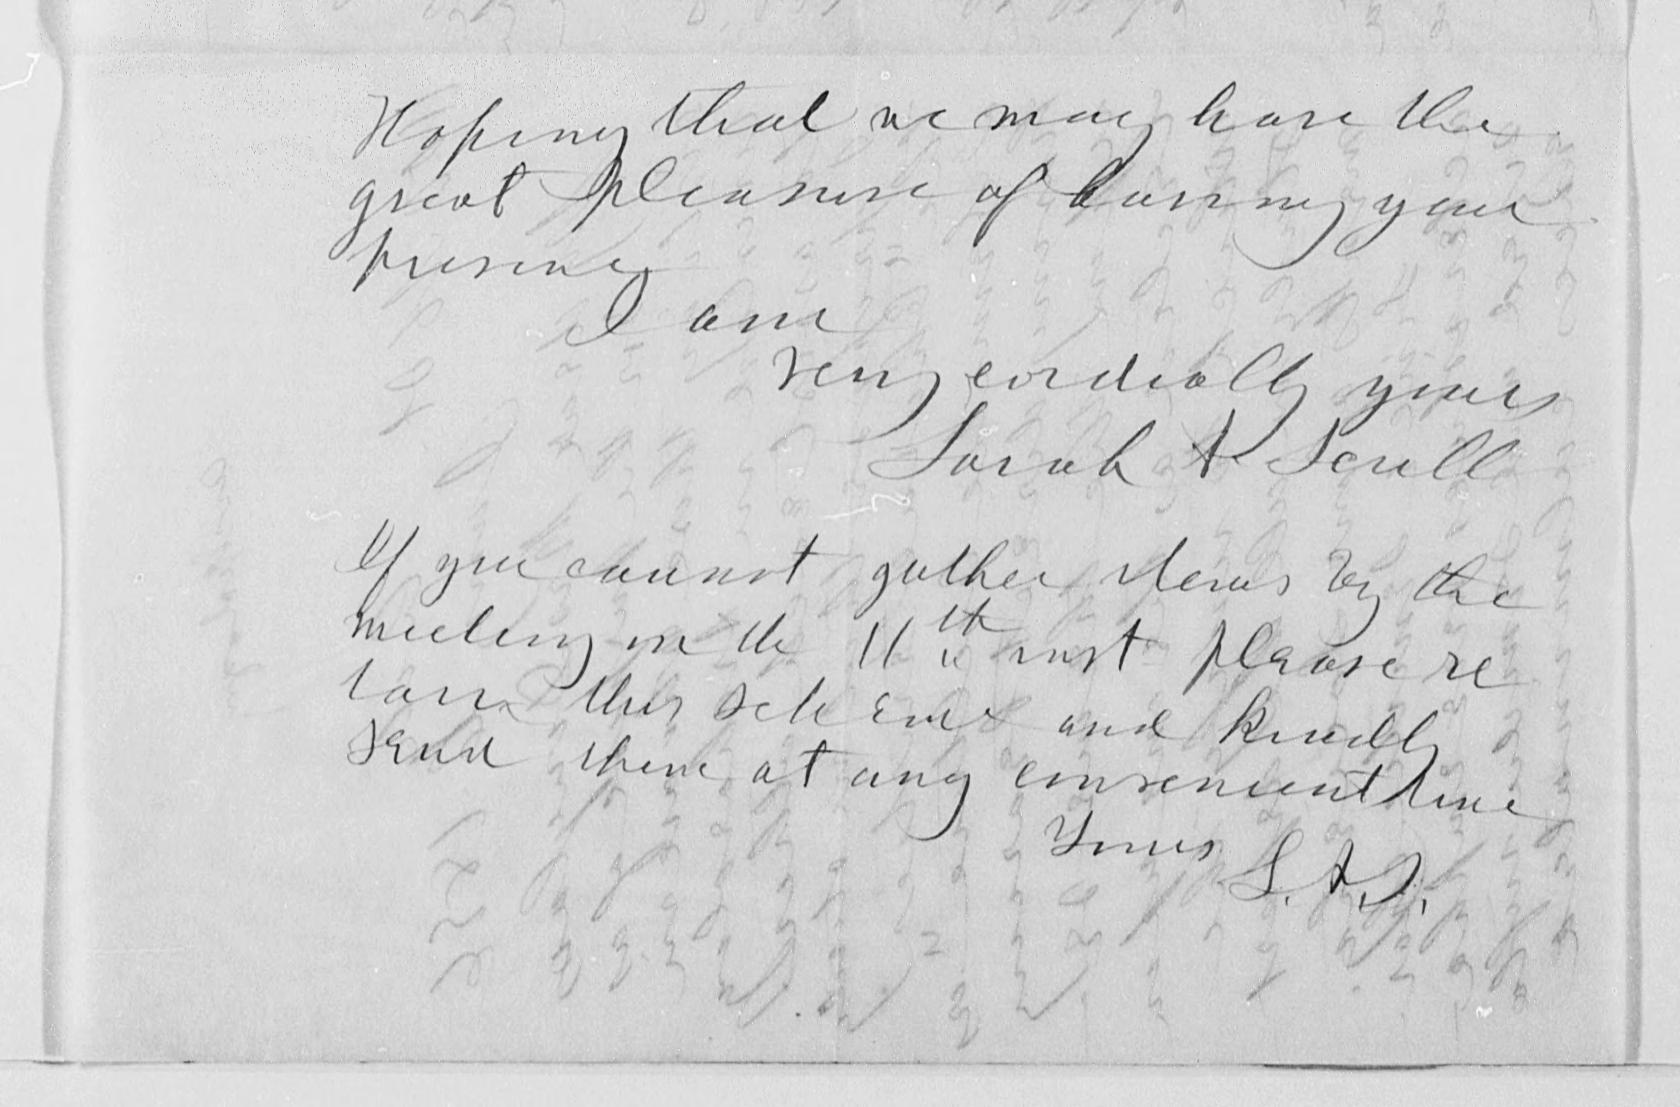 Hoping that we may have the
great pleasure of having your
presence
I am
Very cordially yours
Sarah A Scull
If you cannot gather items by the
meeting on the 11th inst please re
turn this and kindly
send them at any convenient time
Yours S. A. S.